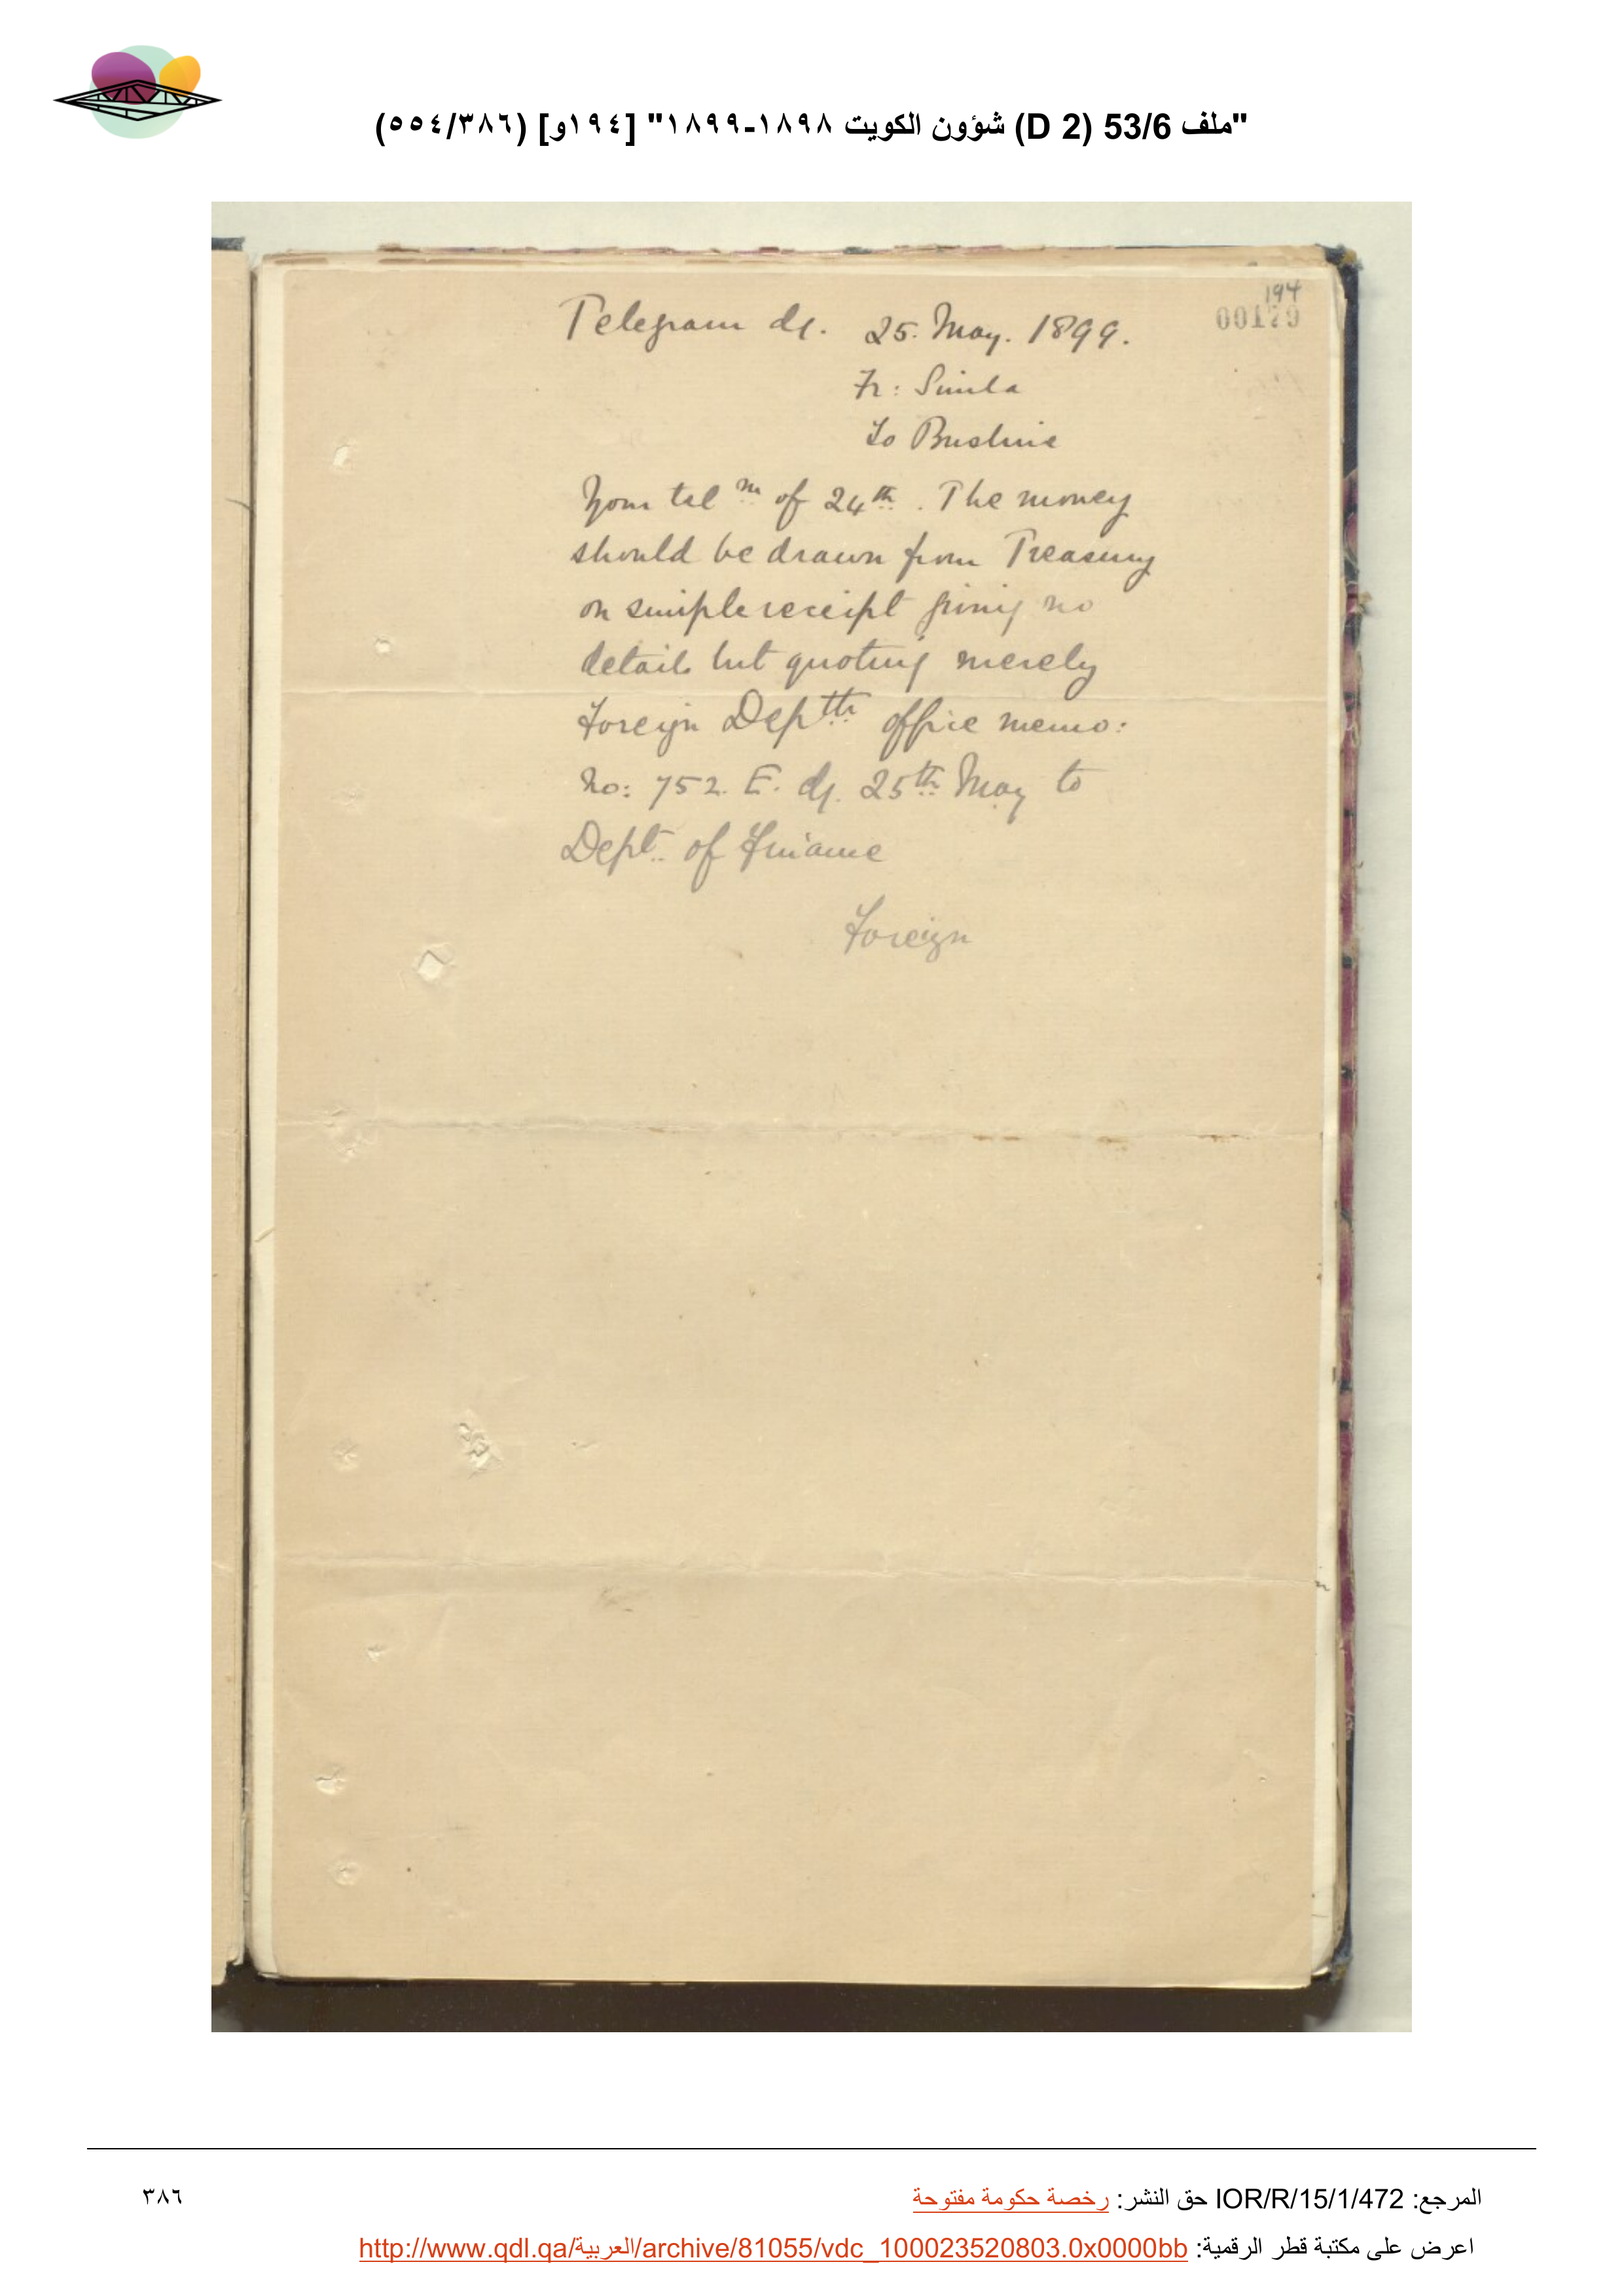 "ملف 53/6 (D 2) شؤون الكويت ١٨٩٨-١٨٩٩" [١٩٤و] (٣٨٦/٥٥٤)
194
00179
Telegram dd. 25. May. 1899.
Fr: Simla
To Bushire
Your tel m of 24th. The money
should be drawn from Treasury
on simple receipt giving no
details but quoting merely
Foreign Deptt. office memo:
No: 752. E. dd. 25th May to
Dept. of Finance
Foreign
المرجع: IOR/R/15/1/472 حق النشر: رخصة حكومة مفتوحة
٣٨٦
اعرض على مكتبة قطر الرقمية: http://www.qdl.qa/العربية/archive/81055/vdc_100023520803.0x0000bb